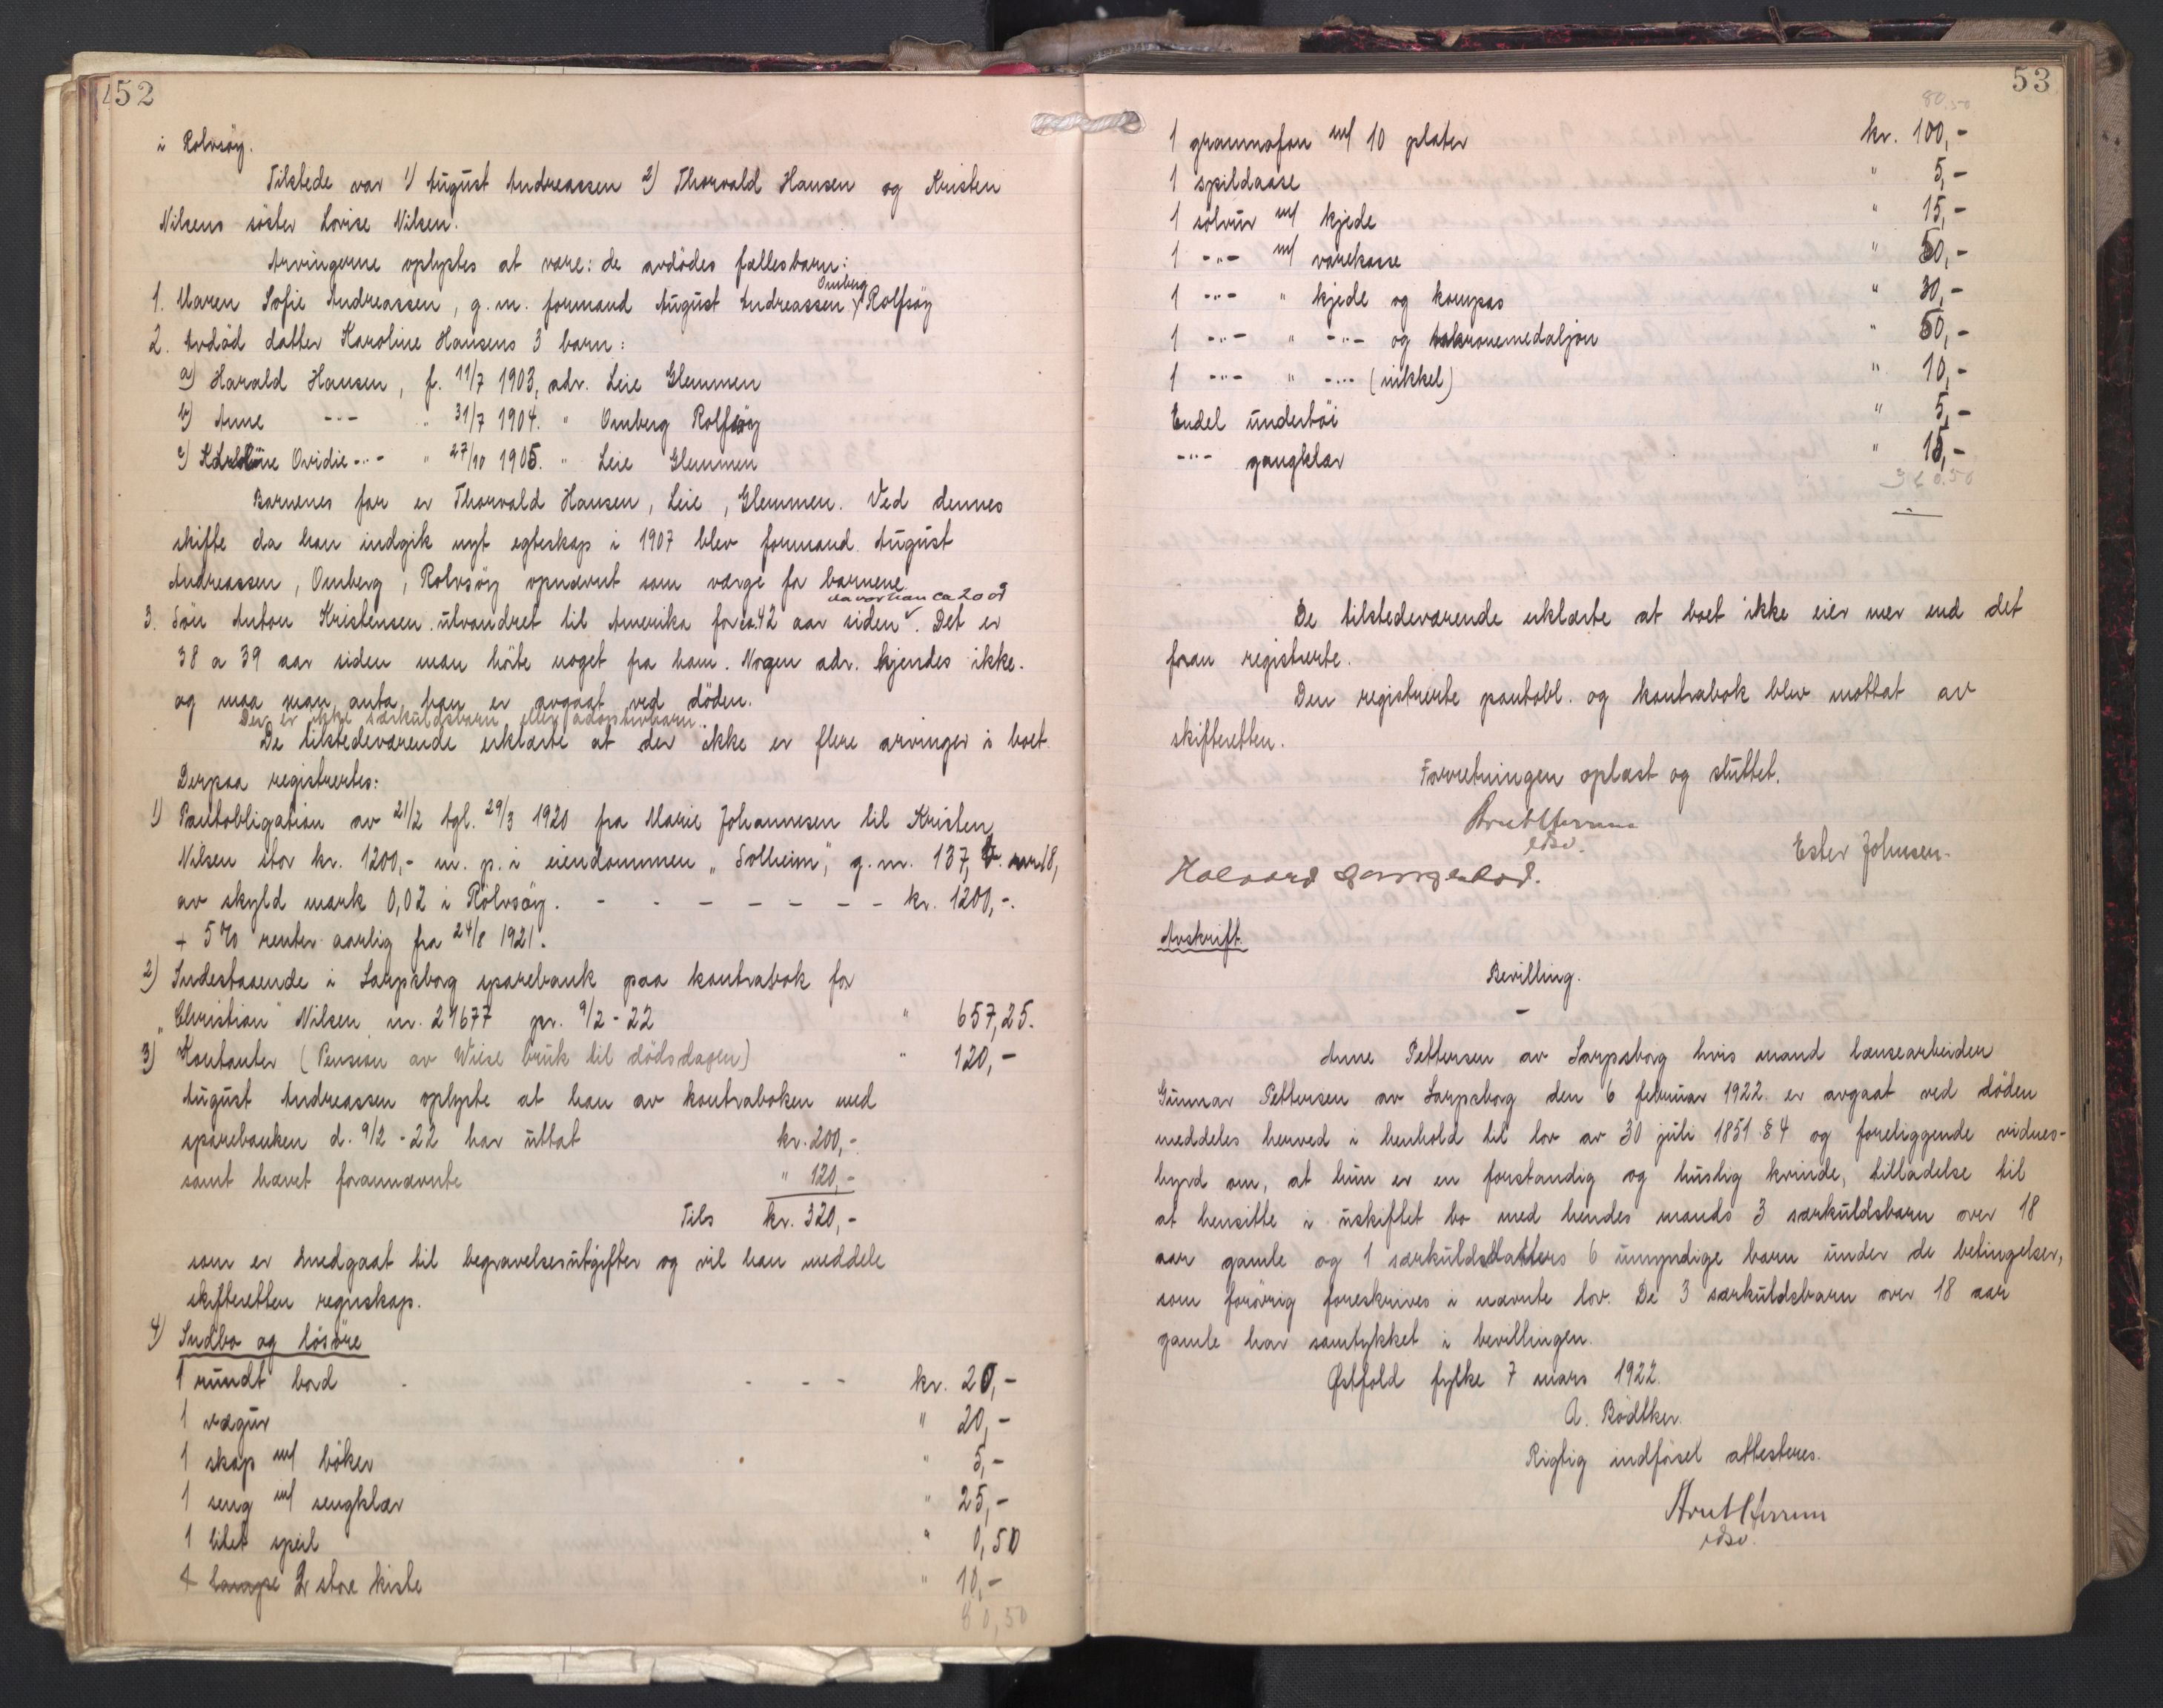 52
i Rolvsöy.
Tilstede var 1) August Andreassen 2) Thorvald Hansen og Kristen
Nilsens söster Lovise Nilsen.
Arvingerne oplystes at være: de avdödes fællesbarn:
Omberg
1. Maren Sofie Andreassen, g.m. formand August Andreassen, Rolfsöy
2. Avdöd datter Karoline Hansens 3 barn:
a) Harald Hansen, f. 11/7 1903, adr. Leie Glemmen
b) Anne -"- " 31/7 1904. " Omberg Rolfsöy
c) Ovidie -"- " 27/10 1905. " Leie Glemmen
Barnenes far er Thorvald Hansen, Leie, Glemmen. Ved dennes
skifte da han indgik nyt egteskap i 1907 blev formand August
Andreassen, Omberg, Rolvsöy opnævnt som værge for barnene.
da var han ca 20 år
3. Sön Anton Kristensen utvandret til Amerika for ca. 42 aar siden. Det er
38 a 39 aar siden man hörte noget fra ham. Nogen adr. kjendes ikke.
og maa man anta han er avgaat ved döden.
Der er ikke særkuldsbarn eller adoptivbarn.
De tilstedeværende erklærte at der ikke er flere arvinger i boet.
Derpaa registrertes:
1) Pantobligation av 21/2 tgl. 29/3 1920 fra Marie Johannesen til Kristen
Nilsen stor kr. 1200,- m. p. i eiendommen "Solheim", g.nr. 137, b. nr. 18,
av skyld mark 0,02 i Rolvsöy. - - - - - - - kr. 1200,-.
+ 5% renter aarlig fra 24/8 1921.
2) Indestaaende i Sarpsborg sparebank paa kontrabok for
"Christian" Nilsen nr. 21677 pr. 9/2 - 22 " 657,25.
3) Kontanter (Pension av Wiese bruk til dödsdagen) " 120,-
August Andreassen oplyste at han av kontraboken med
sparebanken d. 9/2 - 22 har uttat kr. 200,-
samt hævet forannævnte " 120,-
Tils kr. 320,-
som er medgaat til begravelsesutgifter og vil han meddele
skifteretten regnskap.
4) Indbo og lösöre
1 rundt bord - - - kr. 20,-
1 vægur " 20,-
1 skap m/ böker " 5,-
1 seng m/ sengklær " 25,-
1 litet speil " 0,50
2 store kiste " 10,-
80,50
53
80,50
1 grammofon m/ 10 plater kr. 100,-
1 spildaase " 5,-
1 sölvur m/ kjede " 15,-
1 -"- m/ varekasse " 50,-
1 -"- " kjede og kompas " 30,-
1 -"- " -"- og tokronemedaljon " 50,-
1 -"- " -"- (nikkel) " 10,-
Endel undertöi " 5,-
-"- gangklær " 15,-
360.50
De tilstedeværende erklærte at boet ikke eier mer end det
foran registrerte.
Den registrerte pantobl. og kontrabok blev mottat av
skifteretten.
Forretningen oplæst og sluttet.
edsv.
Ester Johnsen.
Avskrift.
Bevilling.
-
Anne Pettersen av Sarpsborg hvis mand lænsearbeider
Gunnar Pettersen av Sarpsborg den 6 februar 1922 er avgaat ved döden
meddeles herved i henhold til lov av 30 juli 1851 § 4 og foreliggende vidnes-
byrd om, at hun er en forstandig og huslig kvinde, tilladelse til
at hensitte i uskiftet bo med hendes mands 3 særkuldsbarn over 18
aar gamle og 1 særkuldsdatters 6 umyndige barn under de betingelser,
som forövrig foreskrives i nævnte lov. De 3 særkuldsbarn over 18 aar
gamle har samtykket i bevillingen.
Østfold fylke 7 mars 1922.
A. Bödtker.
Rigtig indförsel attesteres.
edsv.